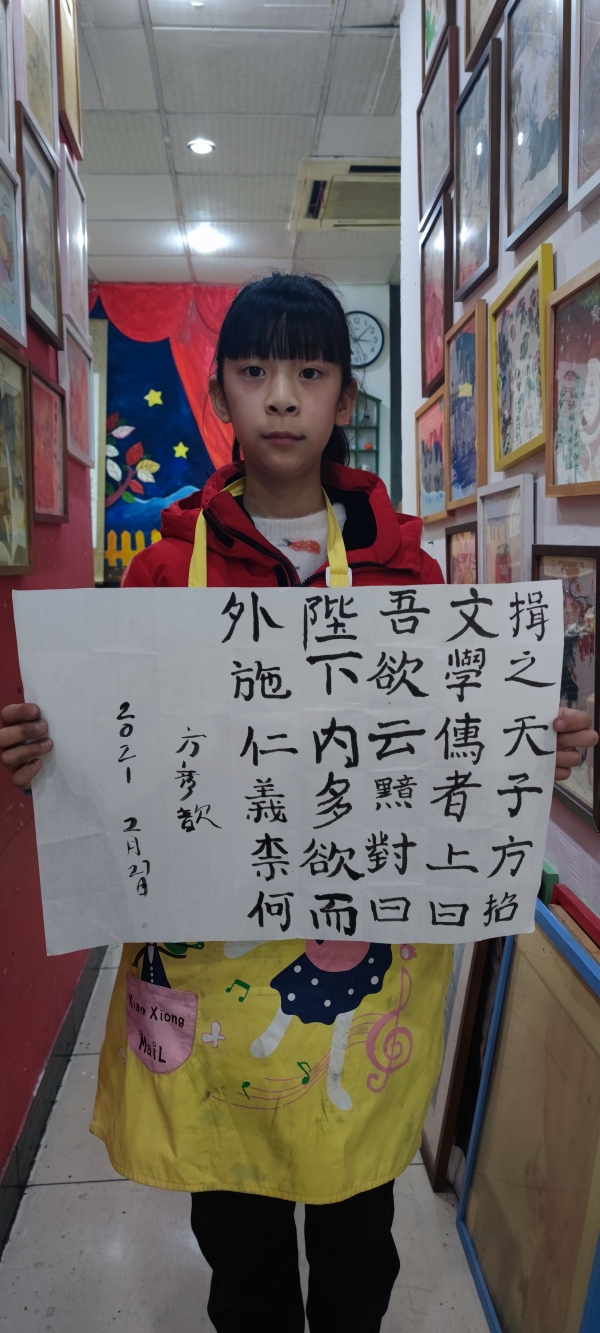 揖之天子方招
文學儒者上曰
吾欲云黯對曰
陛下内多欲而
外施仁義柰何
方彥歆
2021 2月21日
Xiao Xiong
MaiL